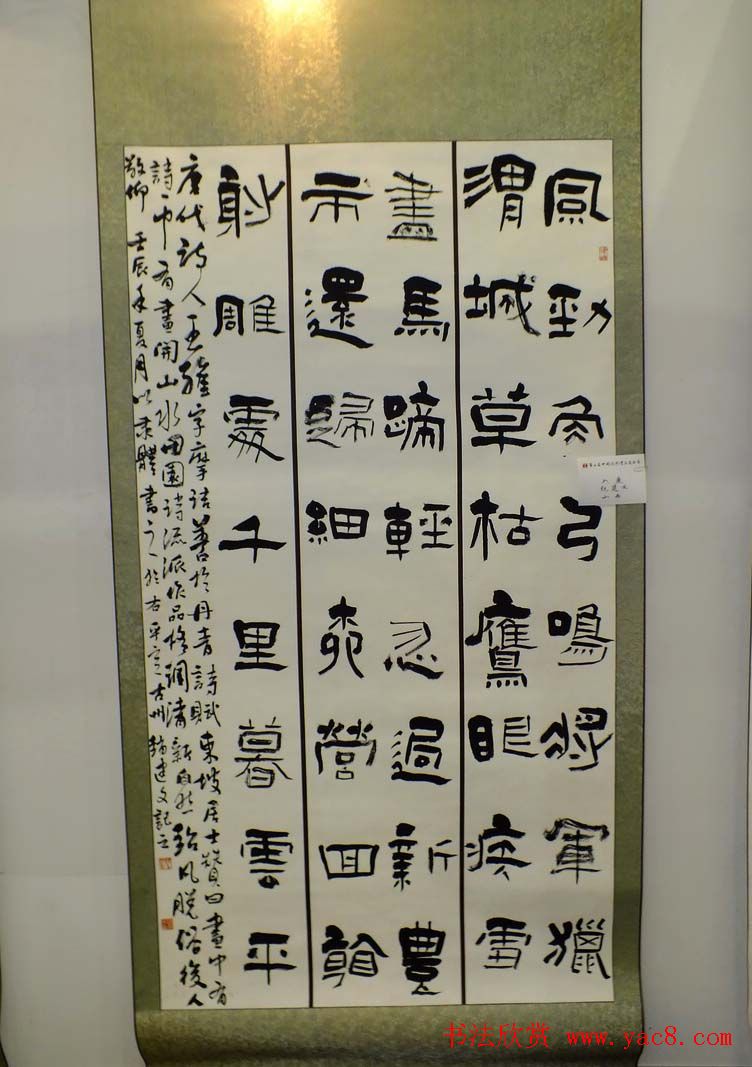 風勁角弓鳴將軍獵
渭城草枯鷹眼疾雪
盡馬蹄輕忽過新豐
市還歸細柳營回看
射雕處千里暮雲平
唐代詩人王維字摩詰善於丹青詩賦東坡居士贊曰畫中有
詩中有畫開山水田園詩流派作品格調清新自然 風脫俗後人
敬仰 壬辰年夏月以隶體書之於古平定古州韓建文記之
书法欣赏 www.yac8.com